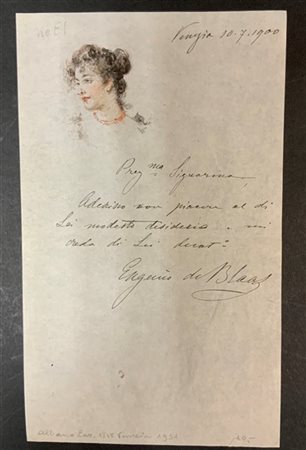 Venezia 10.7.1900
Preg.ma Signorina,
Aderisco con piacere al di
Lei modesto desiderio. mi
creda di Lei devot.o
Eugenio de Blaas
1931
10,-